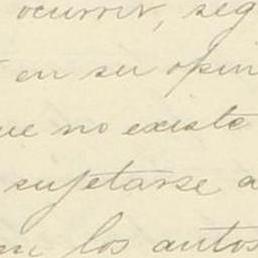 ocurrir, seg
en su opin
ue no existe
sujetarse a
en los autos